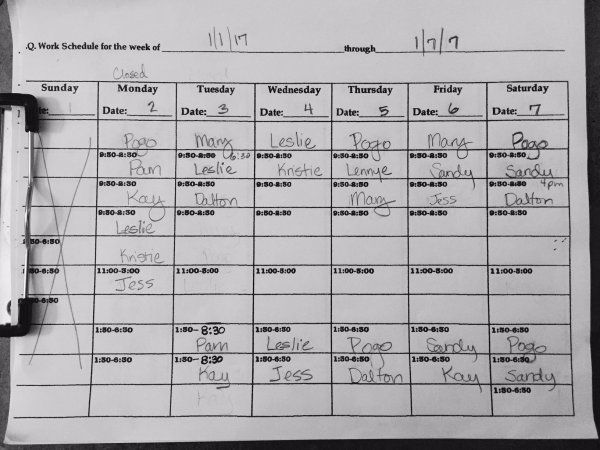 .Q. Work Schedule for the week of 1/1/17 through 1/7/7
Closed
Sunday Monday Tuesday Wednesday Thursday Friday Saturday
1 Date: 2 Date: 3 Date: 4 Date: 5 Date: 6 Date: 7
Pogo Mary Leslie Pogo Mary Pogo
9:30-8:30 9:30-8:30 6:30 9:30-8:30 9:30-8:30 9:30-8:30 9:30-8:30
Pam Leslie Kristie Lennye Sandy Sandy
9:30-8:30 9:30-8:30 9:30-8:30 9:30-8:30 9:30-8:30 9:30-8:30 4pm
Kay Dalton Mary Jess Dalton
9:30-8:30 9:30-8:30 9:30-8:30 9:30-8:30 9:30-8:30 9:30-8:30
Leslie
:30-6:30
Kristie
:30-6:30 11:00-8:00 11:00-8:00 11:00-8:00 11:00-8:00 11:00-8:00 11:00-8:00
Jess
30-6:30
1:30-6:30 1:30-8:30 1:30-6:30 1:30-6:30 1:30-6:30 1:30-6:30
Pam Leslie Pogo Sandy Pogo
1:30-6:30 1:30-8:30 1:30-6:30 1:30-6:30 1:30-6:30 1:30-6:30
Kay Jess Dalton Kay Sandy
1:30-6:30